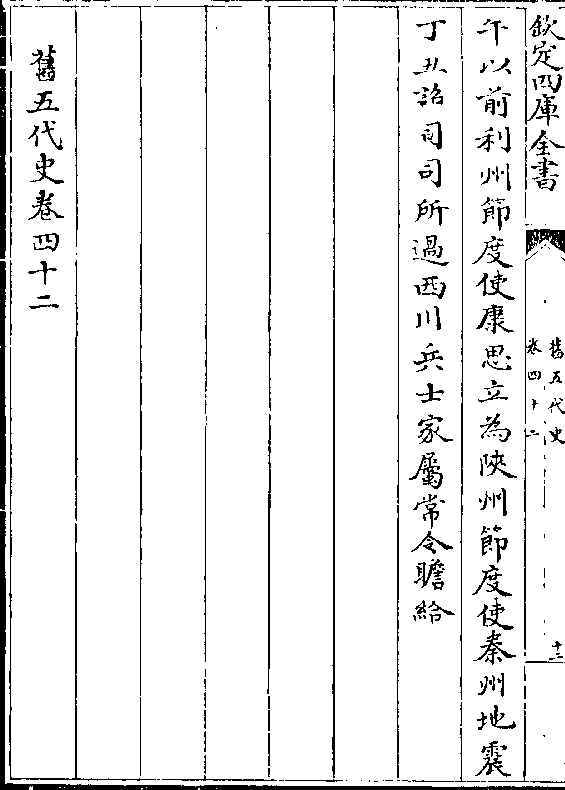 欽定四庫全書
舊五代史
卷四十二
十二
午以前利州節度使康思立為陜州節度使秦州地震
丁丑詔司司所過西川兵士家屬常令贍給
舊五代史卷四十二